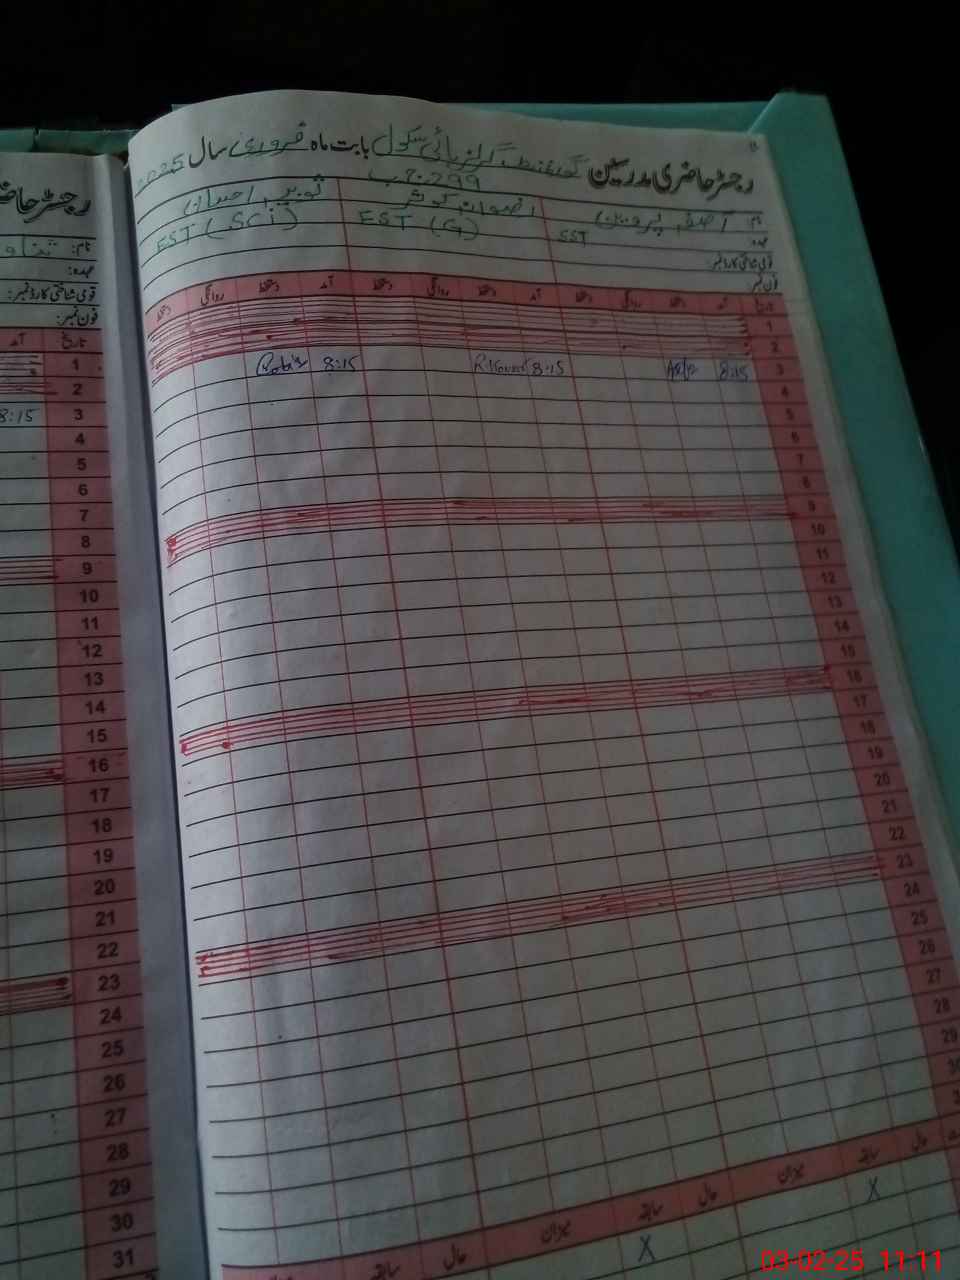 رجسٹر حاضری مدرسین گورنمنٹ گرلز ہائی سکول بابت ماہ فروری سال 2025
299 ر۔ب
نام: آصفہ پروین
رضوانہ کوثر
ثوبیہ احسان
عہدہ: SST
EST (G)
EST (Sci)
قومی شناختی کارڈ نمبر:
فون نمبر:
تاریخ آمد دستخط روانگی دستخط آمد دستخط روانگی دستخط آمد دستخط روانگی دستخط
1
2
3 8:15 8:15 8:15
4
5
6
7
8
9
10
11
12
13
14
15
16
17
18
19
20
21
22
23
24
25
26
27
28
29
حال سابقہ میزان حال سابقہ میزان حال سابقہ
X X
رجسٹر حا
نام:
عہدہ:
قومی شناختی کارڈ نمبر:
فون نمبر:
تاریخ آمد
1
2
3 8:15
4
5
6
7
8
9
10
11
12
13
14
15
16
17
18
19
20
21
22
23
24
25
26
27
28
29
30
31
03-02-25 11:11